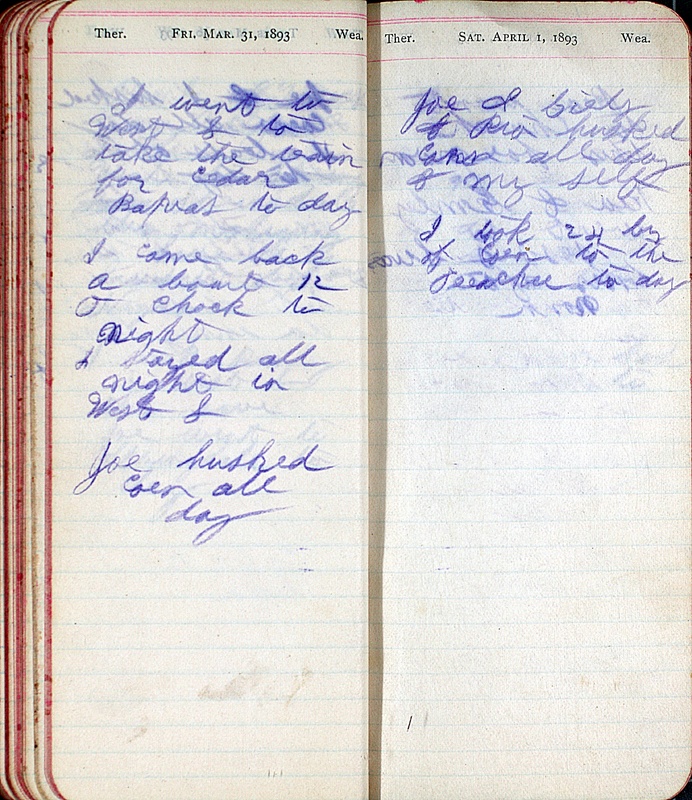 Ther. FRI. MAR. 31, 1893 Wea.
I went to
West L to
take the train
for Cedar
Rapids to day
I come back
a bout 12
O Clock to
night
I stayed all
night in
West L
Joe husked
Corn all
day
Ther. SAT. APRIL 1, 1893 Wea.
Joe &
& husked
Corn all day
& my self
I took 24 bu
of Corn to the
to day